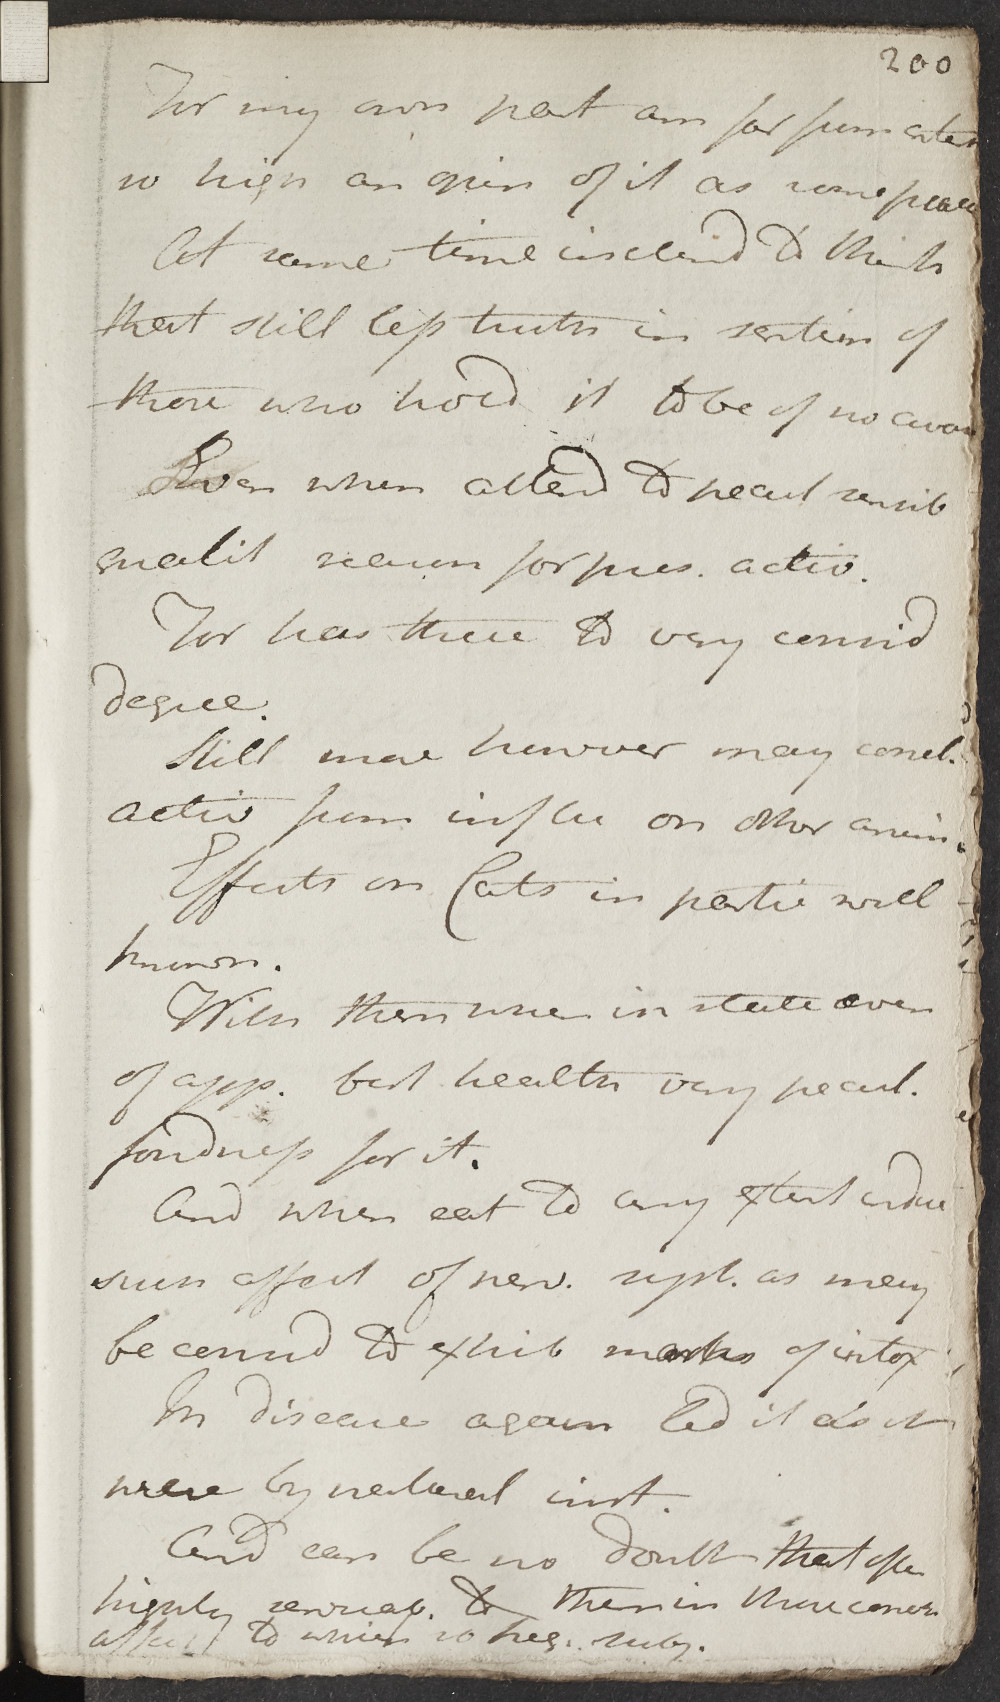 200
For my own part am far from entert
so high an opin of it as some prac
At same time inclend to think
that still less truth in sentim of
those who hold it to be of no avai
Even when attend to pecul sensib
qualit reason for pres. activ.
For has these to very consid
degree.
Still more however may concl.
activ from influ on other anim.
Effects on Cats in partic well
known.
With them when in state even
of app. best health very pecul.
fondness for it.
And when eat to any extent induc
such effect of nerv. syst. as may
be consid to exhib marks of intox
In disease again led it as it
were by natural inst.
And can be no doubt that often
highly serviceab. to them in those conv
affect to which so freq. subj.